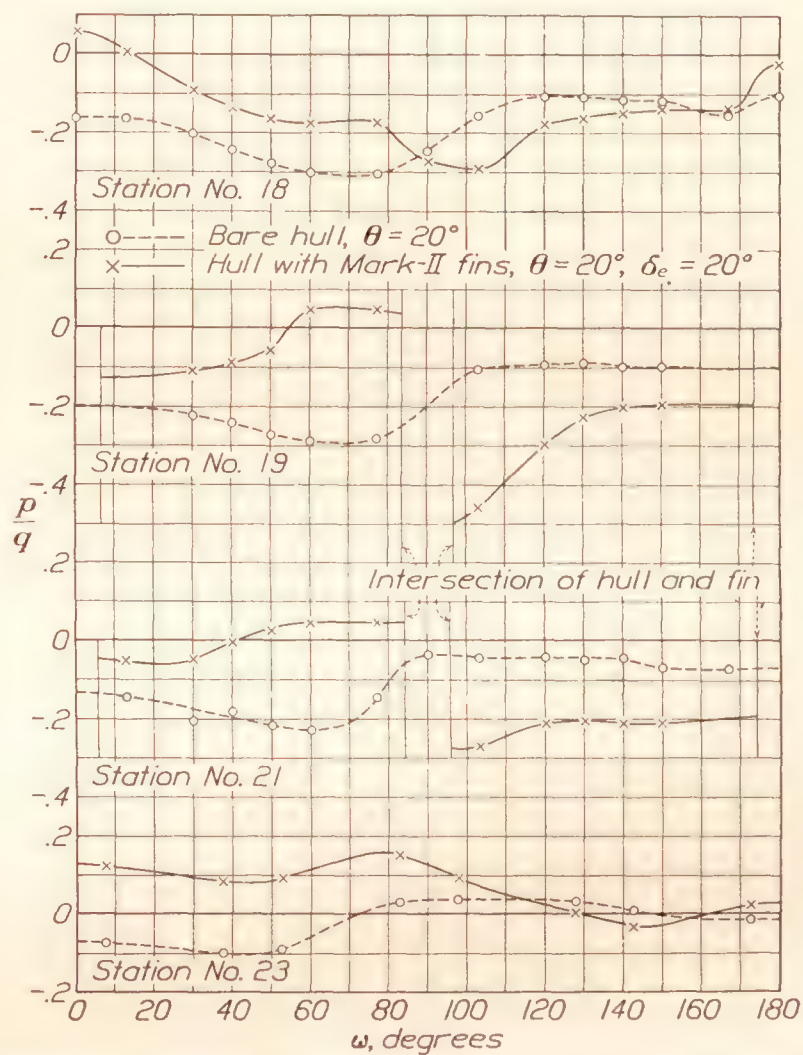 0
-.2
Station No. 18
-.4
.2
o---- Bare hull, θ = 20°
×—— Hull with Mark-II fins, θ = 20°, δe = 20°
0
-.2
Station No. 19
-.4
p/q
.2
Intersection of hull and fin
0
-.2
Station No. 21
-.4
.2
0
Station No. 23
-.2
0 20 40 60 80 100 120 140 160 180
ω, degrees